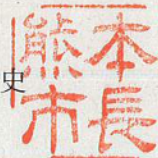 本長
熊市
史